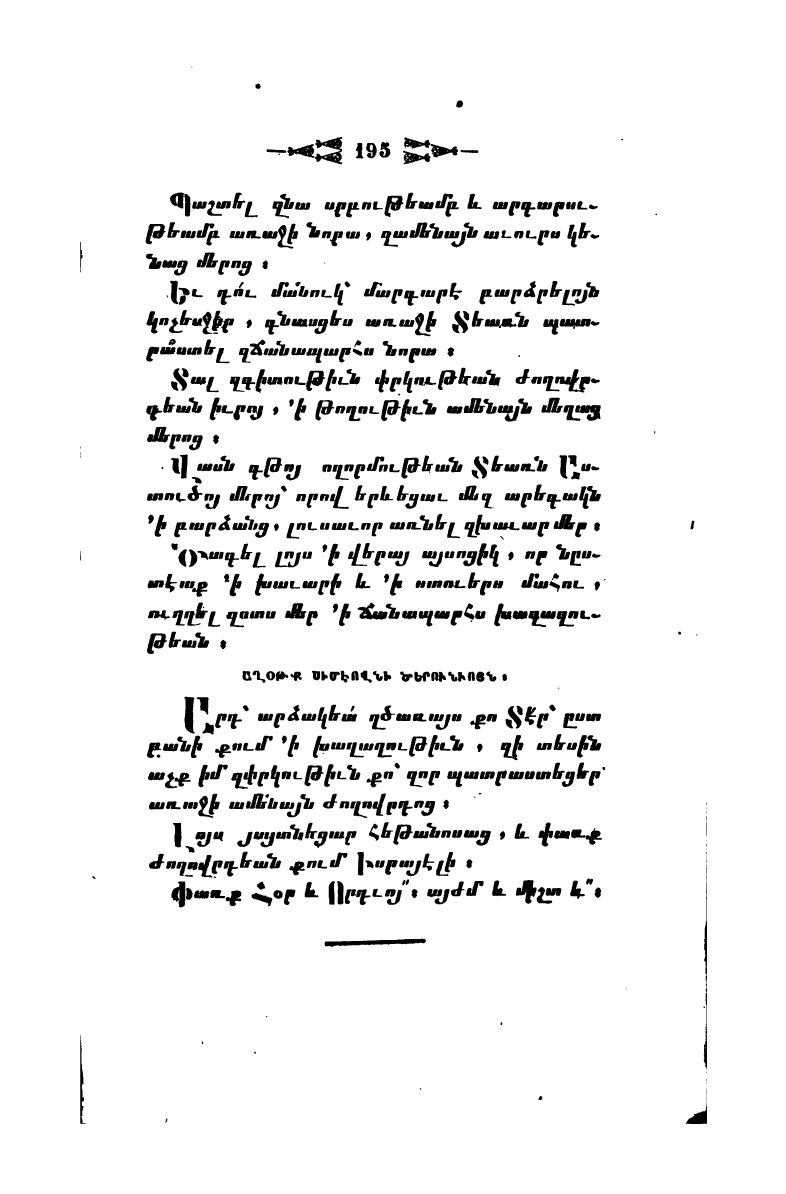 195
Պաշտել զնա սրբութեամբ և արդարու֊
թեամբ առաջի նորա, զամենայն աւուրս կե֊
նաց մերոց։
Եւ դո՛ւ մանուկ՝ մարգարէ բարձրելոյն
կոչեսջիր, գնասցես առաջի Տեառն պատ֊
րաստել զճանապարհս նորա։
Տալ զգիտութիւն փրկութեան ժողովր֊
դեան իւրոյ, ՚ի թողութիւն ամենայն մեղաց
մերոց։
Վասն գթոյ ողորմութեան Տեառն Աս֊
տուծոյ մերոյ՝ որով երևեցաւ մեզ արեգակն
՚ի բարձանց, լուսաւոր առնել զխաւար մեր։
Ծագել լոյս ՚ի վերայ այսոցիկ, որ նըս֊
տէաք ՚ի խաւարի և ՚ի ստուերս մահու,
ուղղել զոտս մեր ՚ի ճանապարհս խաղաղու֊
թեան։
ԱՂՕԹՔ ՍԻՄԷՈՎՆԻ ԾԵՐՈՒՆՒՈՅՆ։
Արդ՝ արձակեա՛ զծառայս քո Տէր՝ ըստ
բանի քում ՚ի խաղաղութիւն, զի տեսին
աչք իմ զփրկութիւն քո՝ զոր պատրաստեցեր
առաջի ամենայն ժողովրդոց։
Լոյս յայտնեցար հեթանոսաց, և փառք
ժողովրդեան քում Իսրայէլի։
Փառք Հօր և Որդւոյ՞։ այժմ և միշտ և՞։